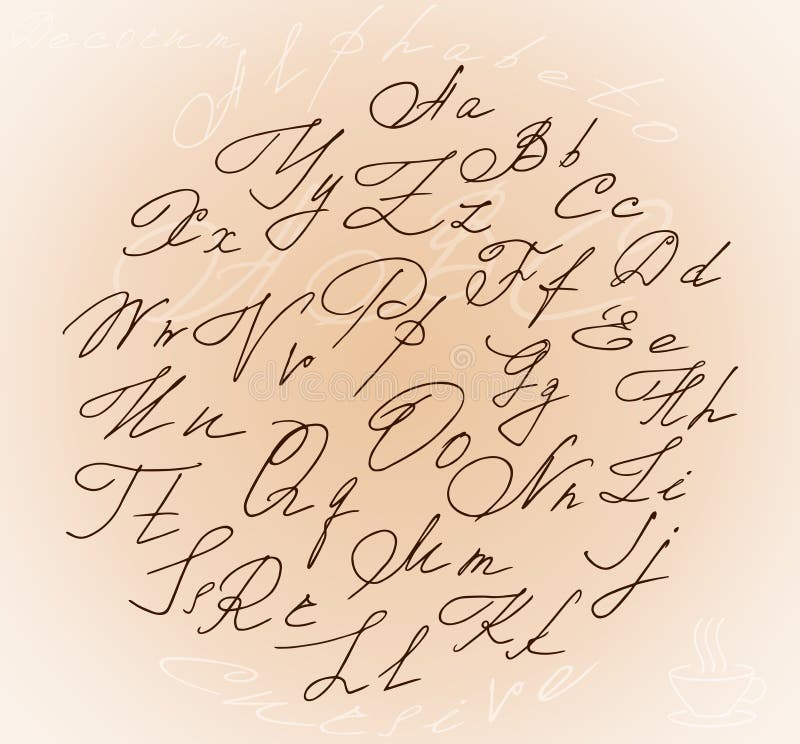 Decorum
Alphabeto
Aa
Bb
Yy
Zz
Cc
Xx
Ff
Dd
Pp
Ww
Vv
Ee
Gg
Hh
Uu
Oo
Qq
Nn
Ii
Tt
Mm
Jj
Ss
Rr
Kk
Ll
ABC
Cursive
dreamstime